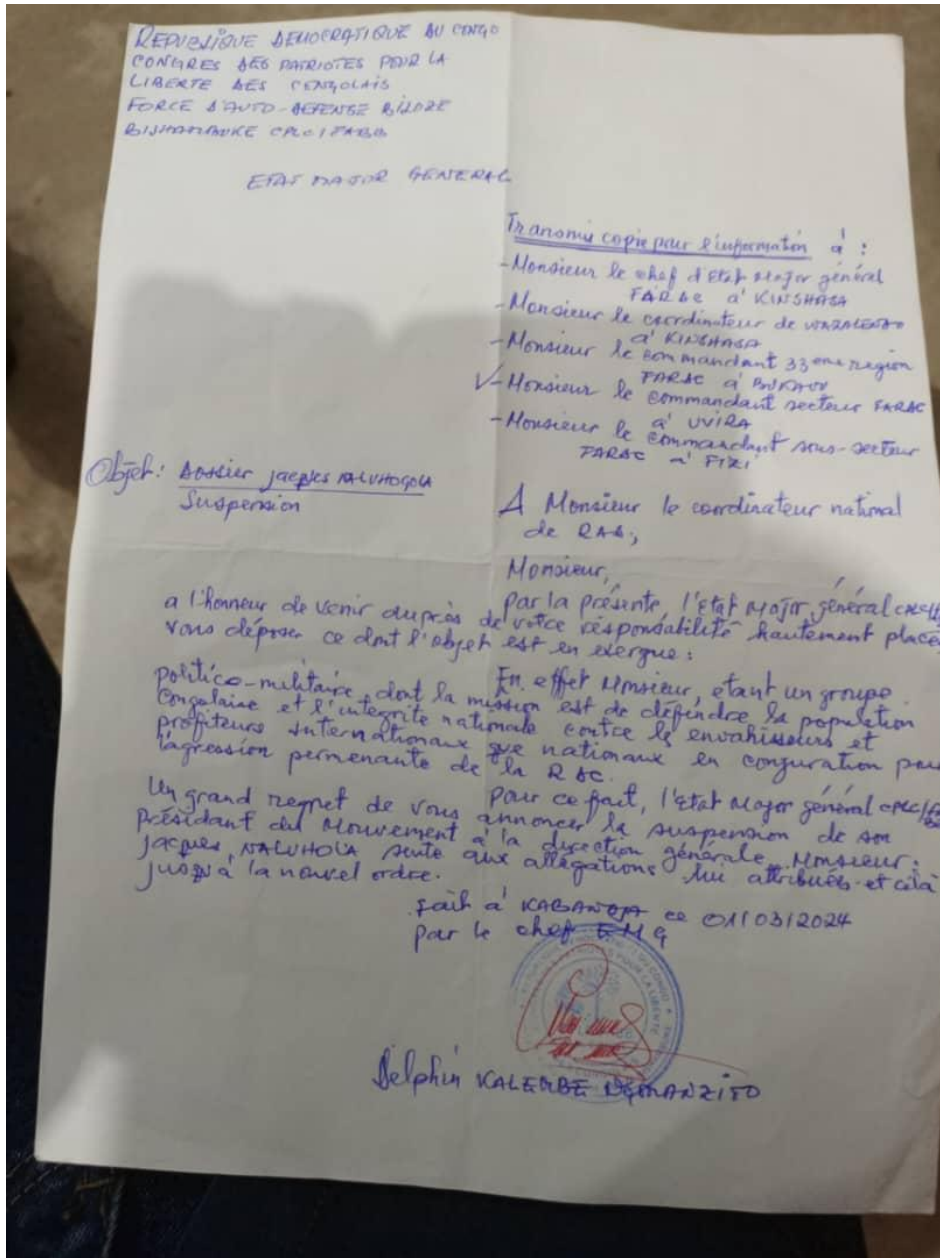 REPUBLIQUE DEMOCRATIQUE DU CONGO
CONGRES DES PATRIOTES POUR LA
LIBERTE DES CONGOLAIS
FORCE D'AUTO-DEFENSE BILOZE
BISHAMBUKE CPLC/FABB
ETAT MAJOR GENERAL
Transmis copie pour l'information à :
- Monsieur le chef d'Etat Major général
FARDC à KINSHASA
- Monsieur le coordinateur de WAZALENDO
à KINSHASA
- Monsieur le commandant 33eme region
FARDC à BUKAVU
- Monsieur le commandant secteur FARDC
à UVIRA
- Monsieur le commandant sous-secteur
FARDC à FIZI
Objet: Dossier jacques NALUHOGOLA
Suspension
A Monsieur le coordinateur national
de RAD,
Monsieur,
Par la présente, l'etat Major général
a l'honneur de venir auprès de votre résponsabilité hautement placée
vous déposer ce dont l'objet est en exergue :
En effet Monsieur, etant un groupe
politico-militaire, dont la mission est de défindre la population
Congolaise et l'integrité nationale contre les envahisseurs et
profiteurs internationaux que nationaux en conjuration pour
l'agression permenante de la RDC.
Pour ce fait, l'etat Major général
Un grand regret de vous annoncer la suspension de son
Présidant du Mouvement à la direction générale, Monsieur :
jacques NALUHOLA suite aux allégations lui attribués et celà
jusqu'à la nouvel ordre.
Fait à KABANGA ce 01/03/2024
par le chef EMG
Delphin KALEMBE